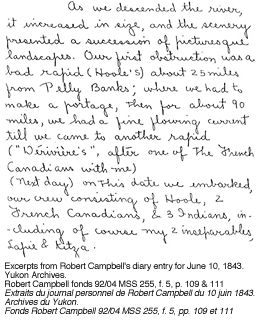 As we descended the river,
it increased in size, and the scenery
presented a succession of picturesque
landscapes. Our first obstruction was a
bad rapid (Hoole's) about 25 miles
from Pelly Banks; where we had to
make a portage, then for about 90
miles, we had a fine flowing current
till we came to another rapid
("Dérivière's", after one of the French
Canadians with me)
(Next day) on this date we embarked,
our crew consisting of Hoole, 2
French Canadians, & 3 Indians, in-
-cluding of course my 2 inseparables,
Lapie & Kitza.
Excerpts from Robert Campbell's diary entry for June 10, 1843.
Yukon Archives.
Robert Campbell fonds 92/04 MSS 255, f. 5, p. 109 & 111
Extraits du journal personnel de Robert Campbell du 10 juin 1843.
Archives du Yukon.
Fonds Robert Campbell 92/04 MSS 255, f. 5, pp. 109 et 111